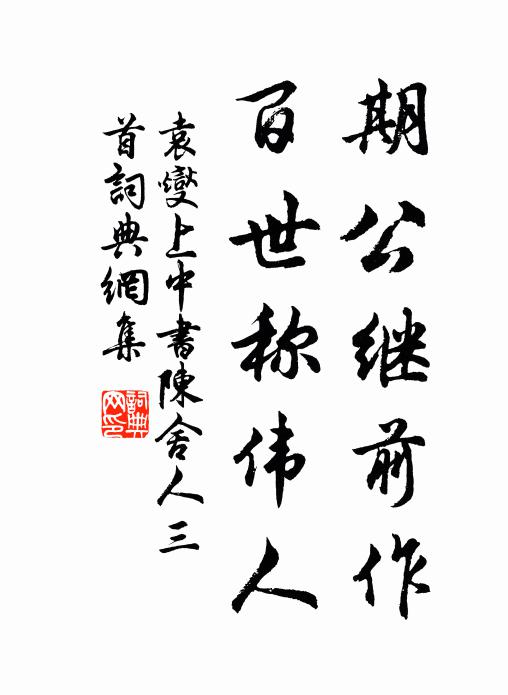 期公继前作
百世称伟人
袁燮上中書陳舍人三
首詞典網集
詞典
网印